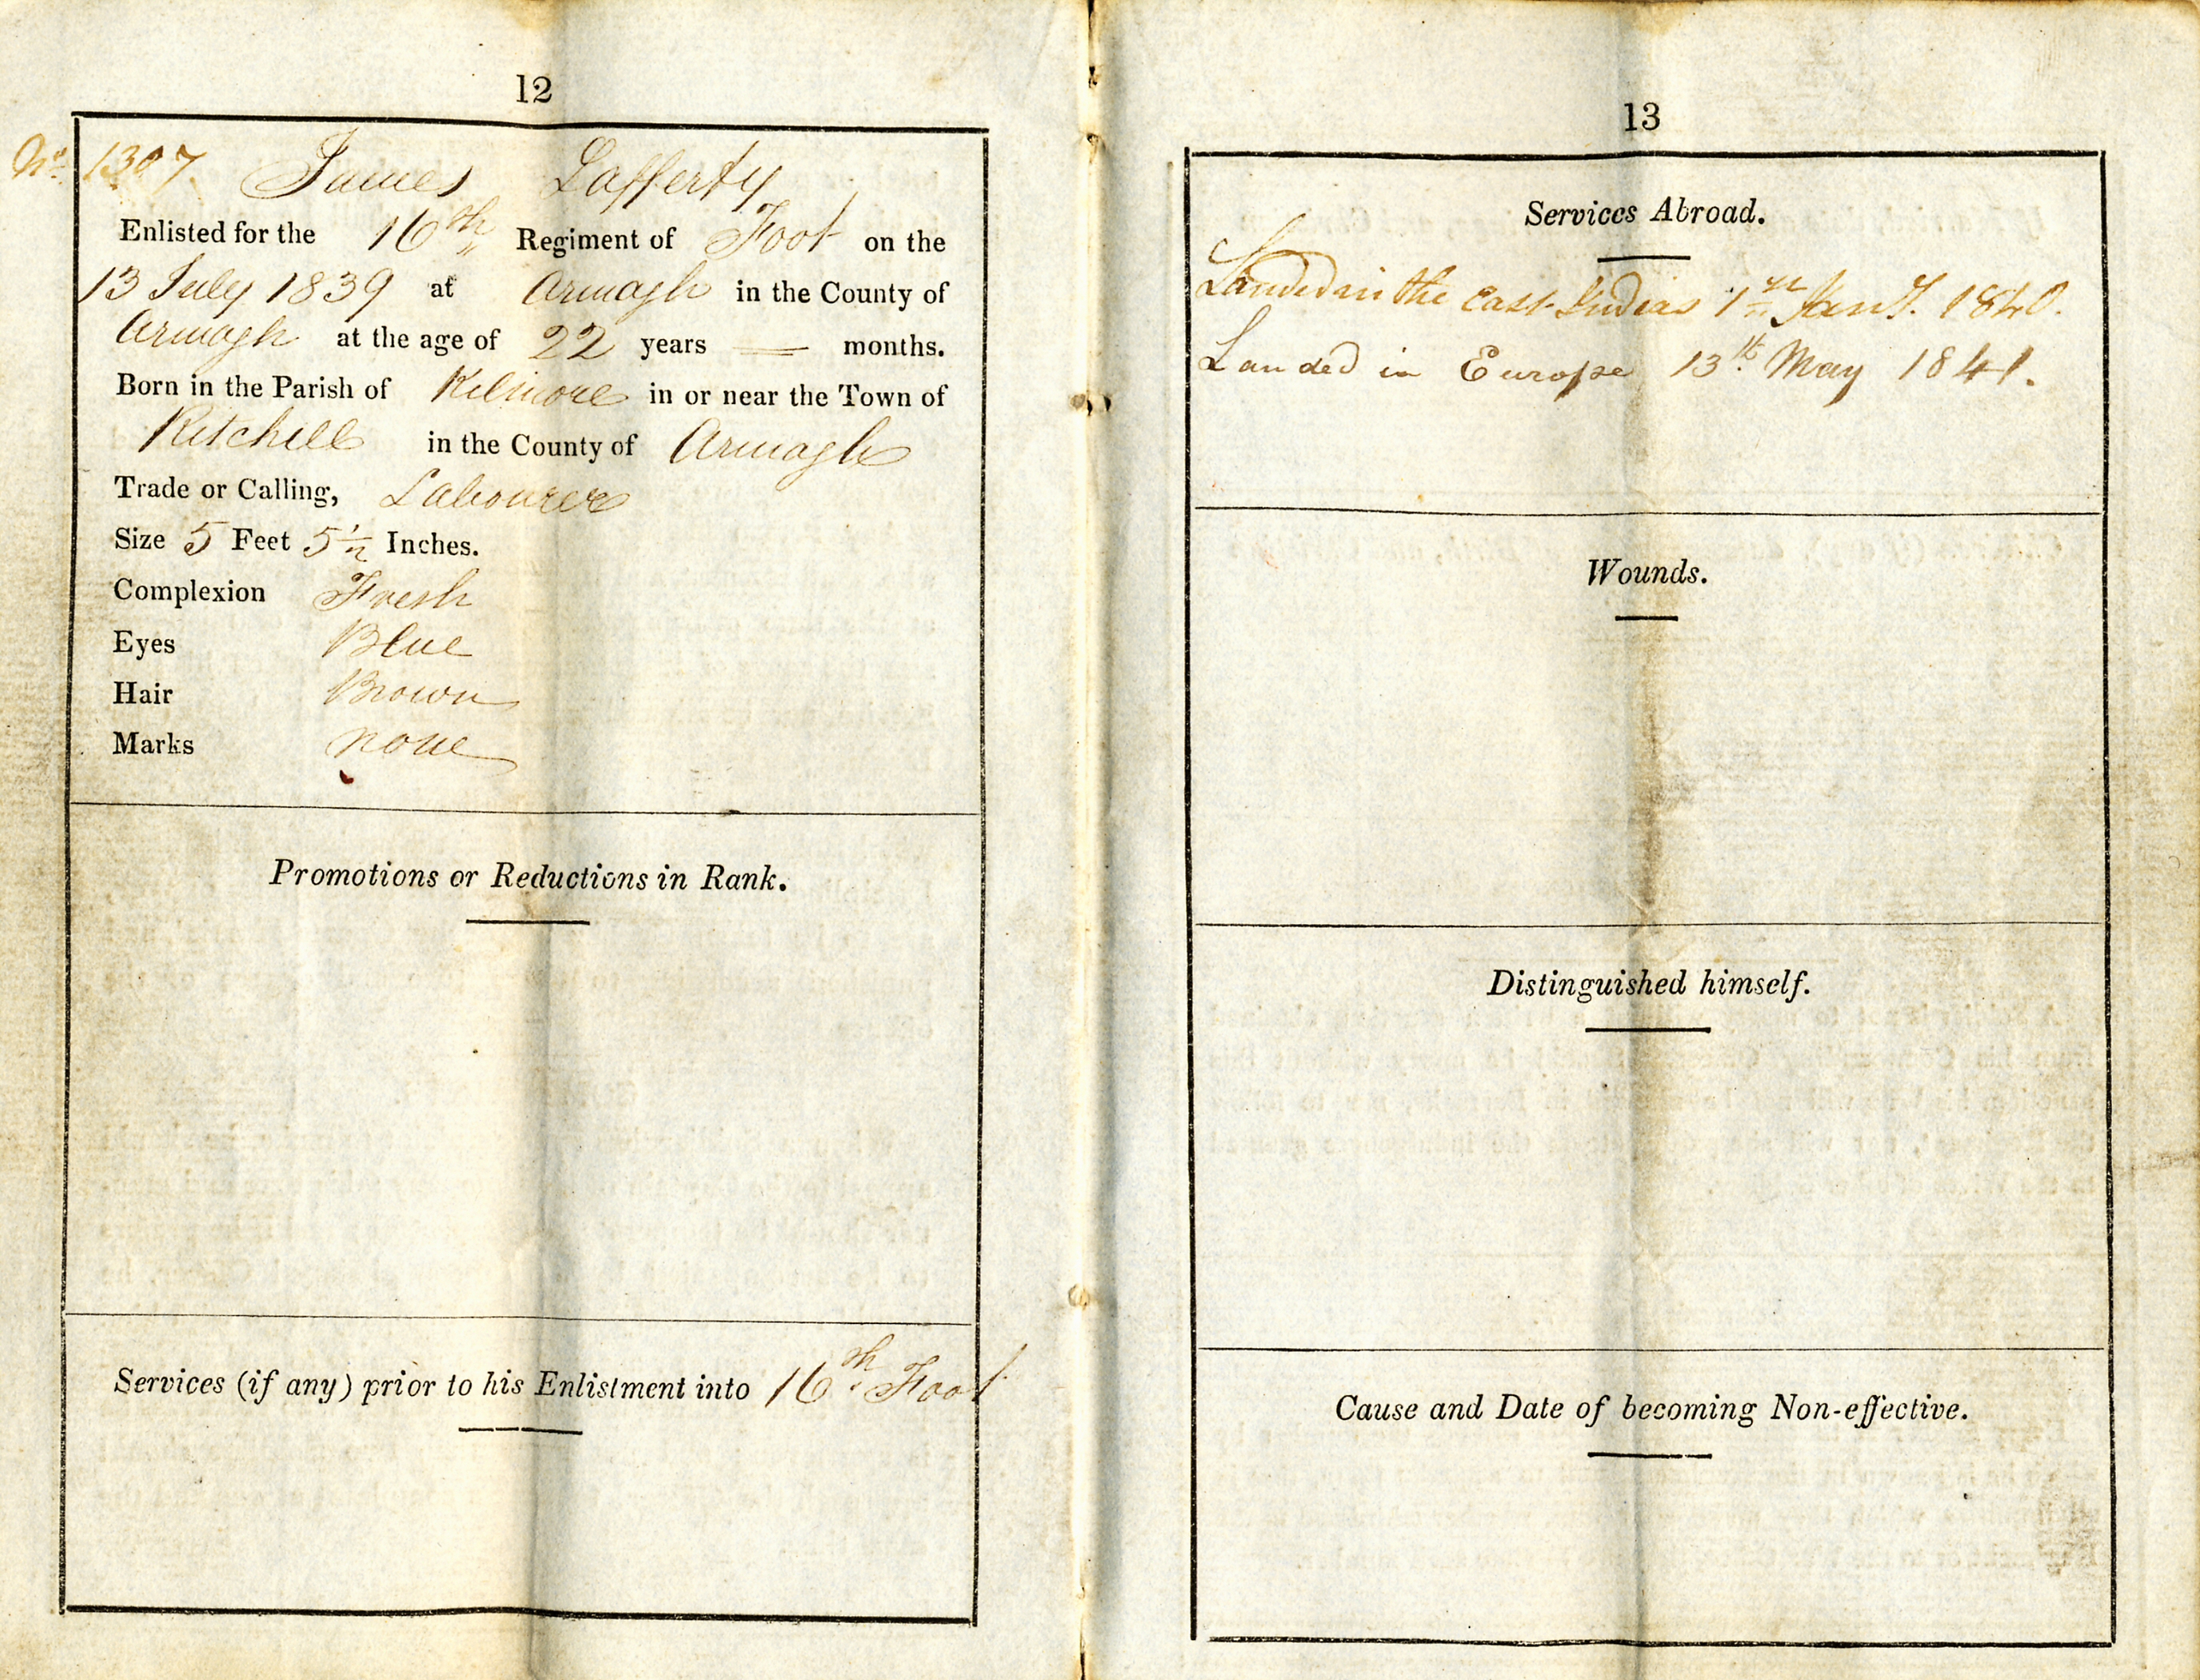 12
No. 1307 James Lafferty
Enlisted for the 16th Regiment of Foot on the
13 July 1839 at Armagh in the County of
Armagh at the age of 22 years — months.
Born in the Parish of Kilmore in or near the Town of
Ritchill in the County of Armagh
Trade or Calling, Labourer
Size 5 Feet 5 1/2 Inches.
Complexion Fresh
Eyes Blue
Hair Brown
Marks none
Promotions or Reductions in Rank.
Services (if any) prior to his Enlistment into 16th Foot
13
Services Abroad.
Landed in the East Indies 1st Jany. 1840.
Landed in Europe 13th May 1841.
Wounds.
Distinguished himself.
Cause and Date of becoming Non-effective.